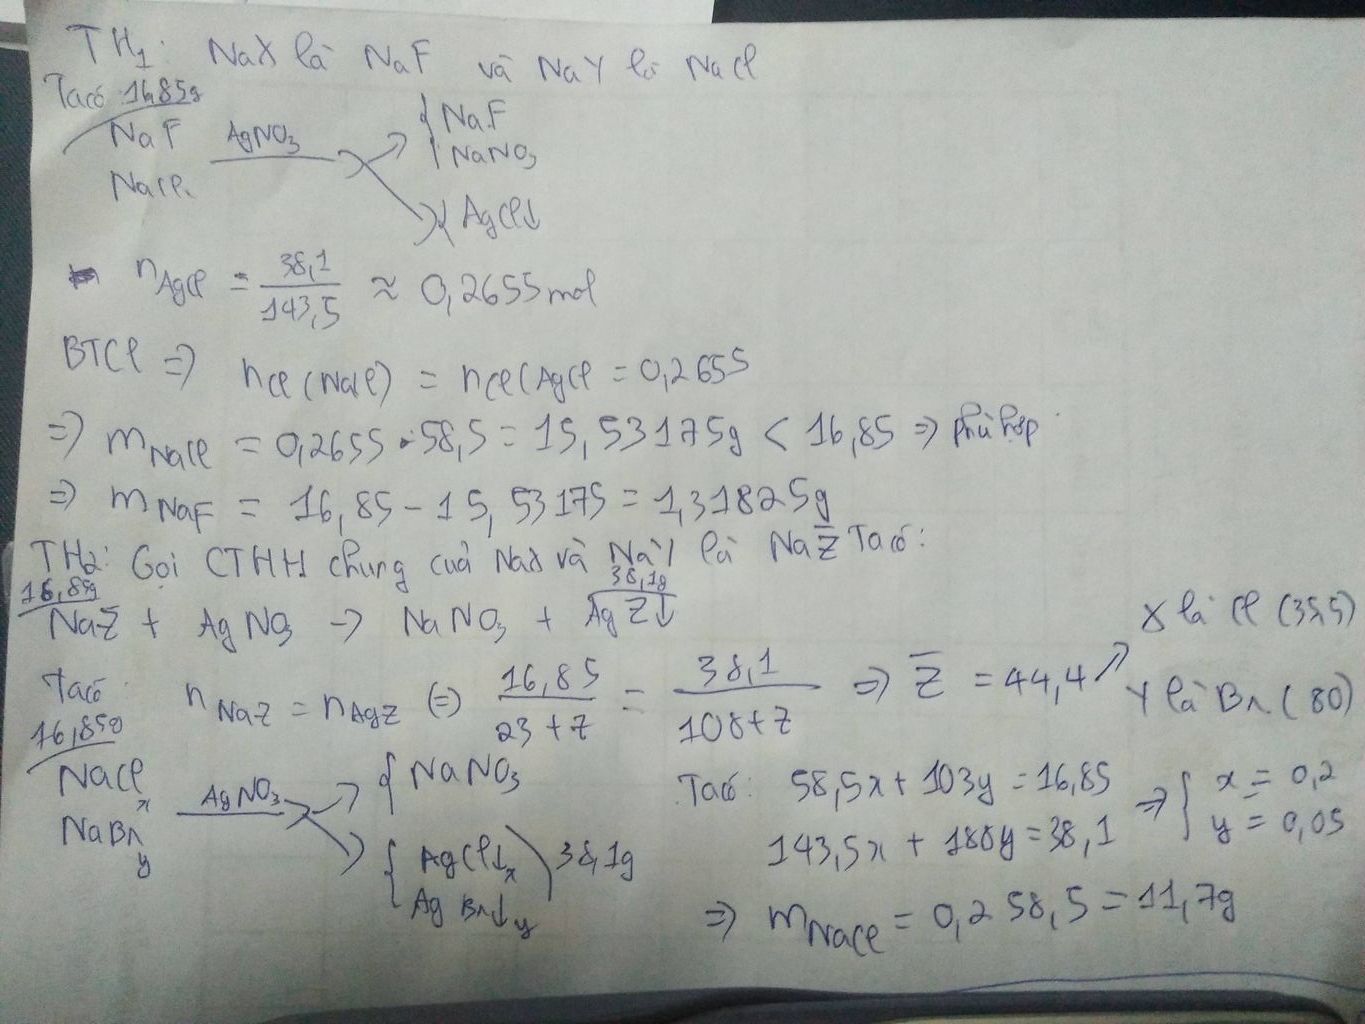 TH₁: NaX là NaF và NaY là NaCl
Ta có 16,85g
NaF AgNO₃ { NaF
NaCl NaNO₃
{ AgCl↓
n AgCl = 38,1 / 143,5 ≈ 0,2655 mol
BTCl => nCl (NaCl) = nCl (AgCl = 0,2655
=> m NaCl = 0,2655 . 58,5 = 15,53175g < 16,85 => phù hợp
=> m NaF = 16,85 - 15,53175 = 1,31825g
TH₂: Gọi CTHH chung của NaX và NaY là NaZ̅ Ta có:
16,85g 38,1g
NaZ̅ + AgNO₃ -> NaNO₃ + AgZ̅↓
Ta có: n NaZ = n AgZ (=) 16,85 / 23 + Z = 38,1 / 108 + Z => Z̅ = 44,4 ↗ X là Cl (35,5)
Y là Br (80)
16,85g
NaCl x AgNO₃ { NaNO₃
NaBr y { AgCl↓ x
AgBr↓ y ) 38,1g
Ta có: 58,5x + 103y = 16,85
143,5x + 188y = 38,1 => { x = 0,2
y = 0,05
=> m NaCl = 0,2 58,5 = 11,7g